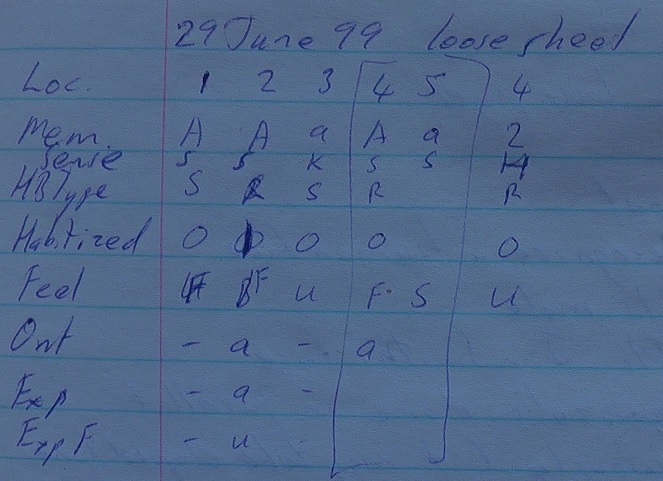 29 June 99 loose sheet
Loc. 1 2 3 4 5 4
Mem. A A a A a 2
Sense S S K S S H
HBType S R S R R
Habitized 0 0 0 0 0
Feel F F U F S U
Ont - a - a
Exp - a -
ExpF - u